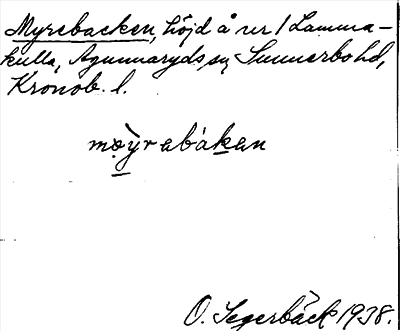 Myrebacken, höjd å rer 1 Lamma-
kulla, Agunnaryds sn, Sunnerbo hd,
Kronob. l.
møyrabákan
O. Segerbäck 1938.